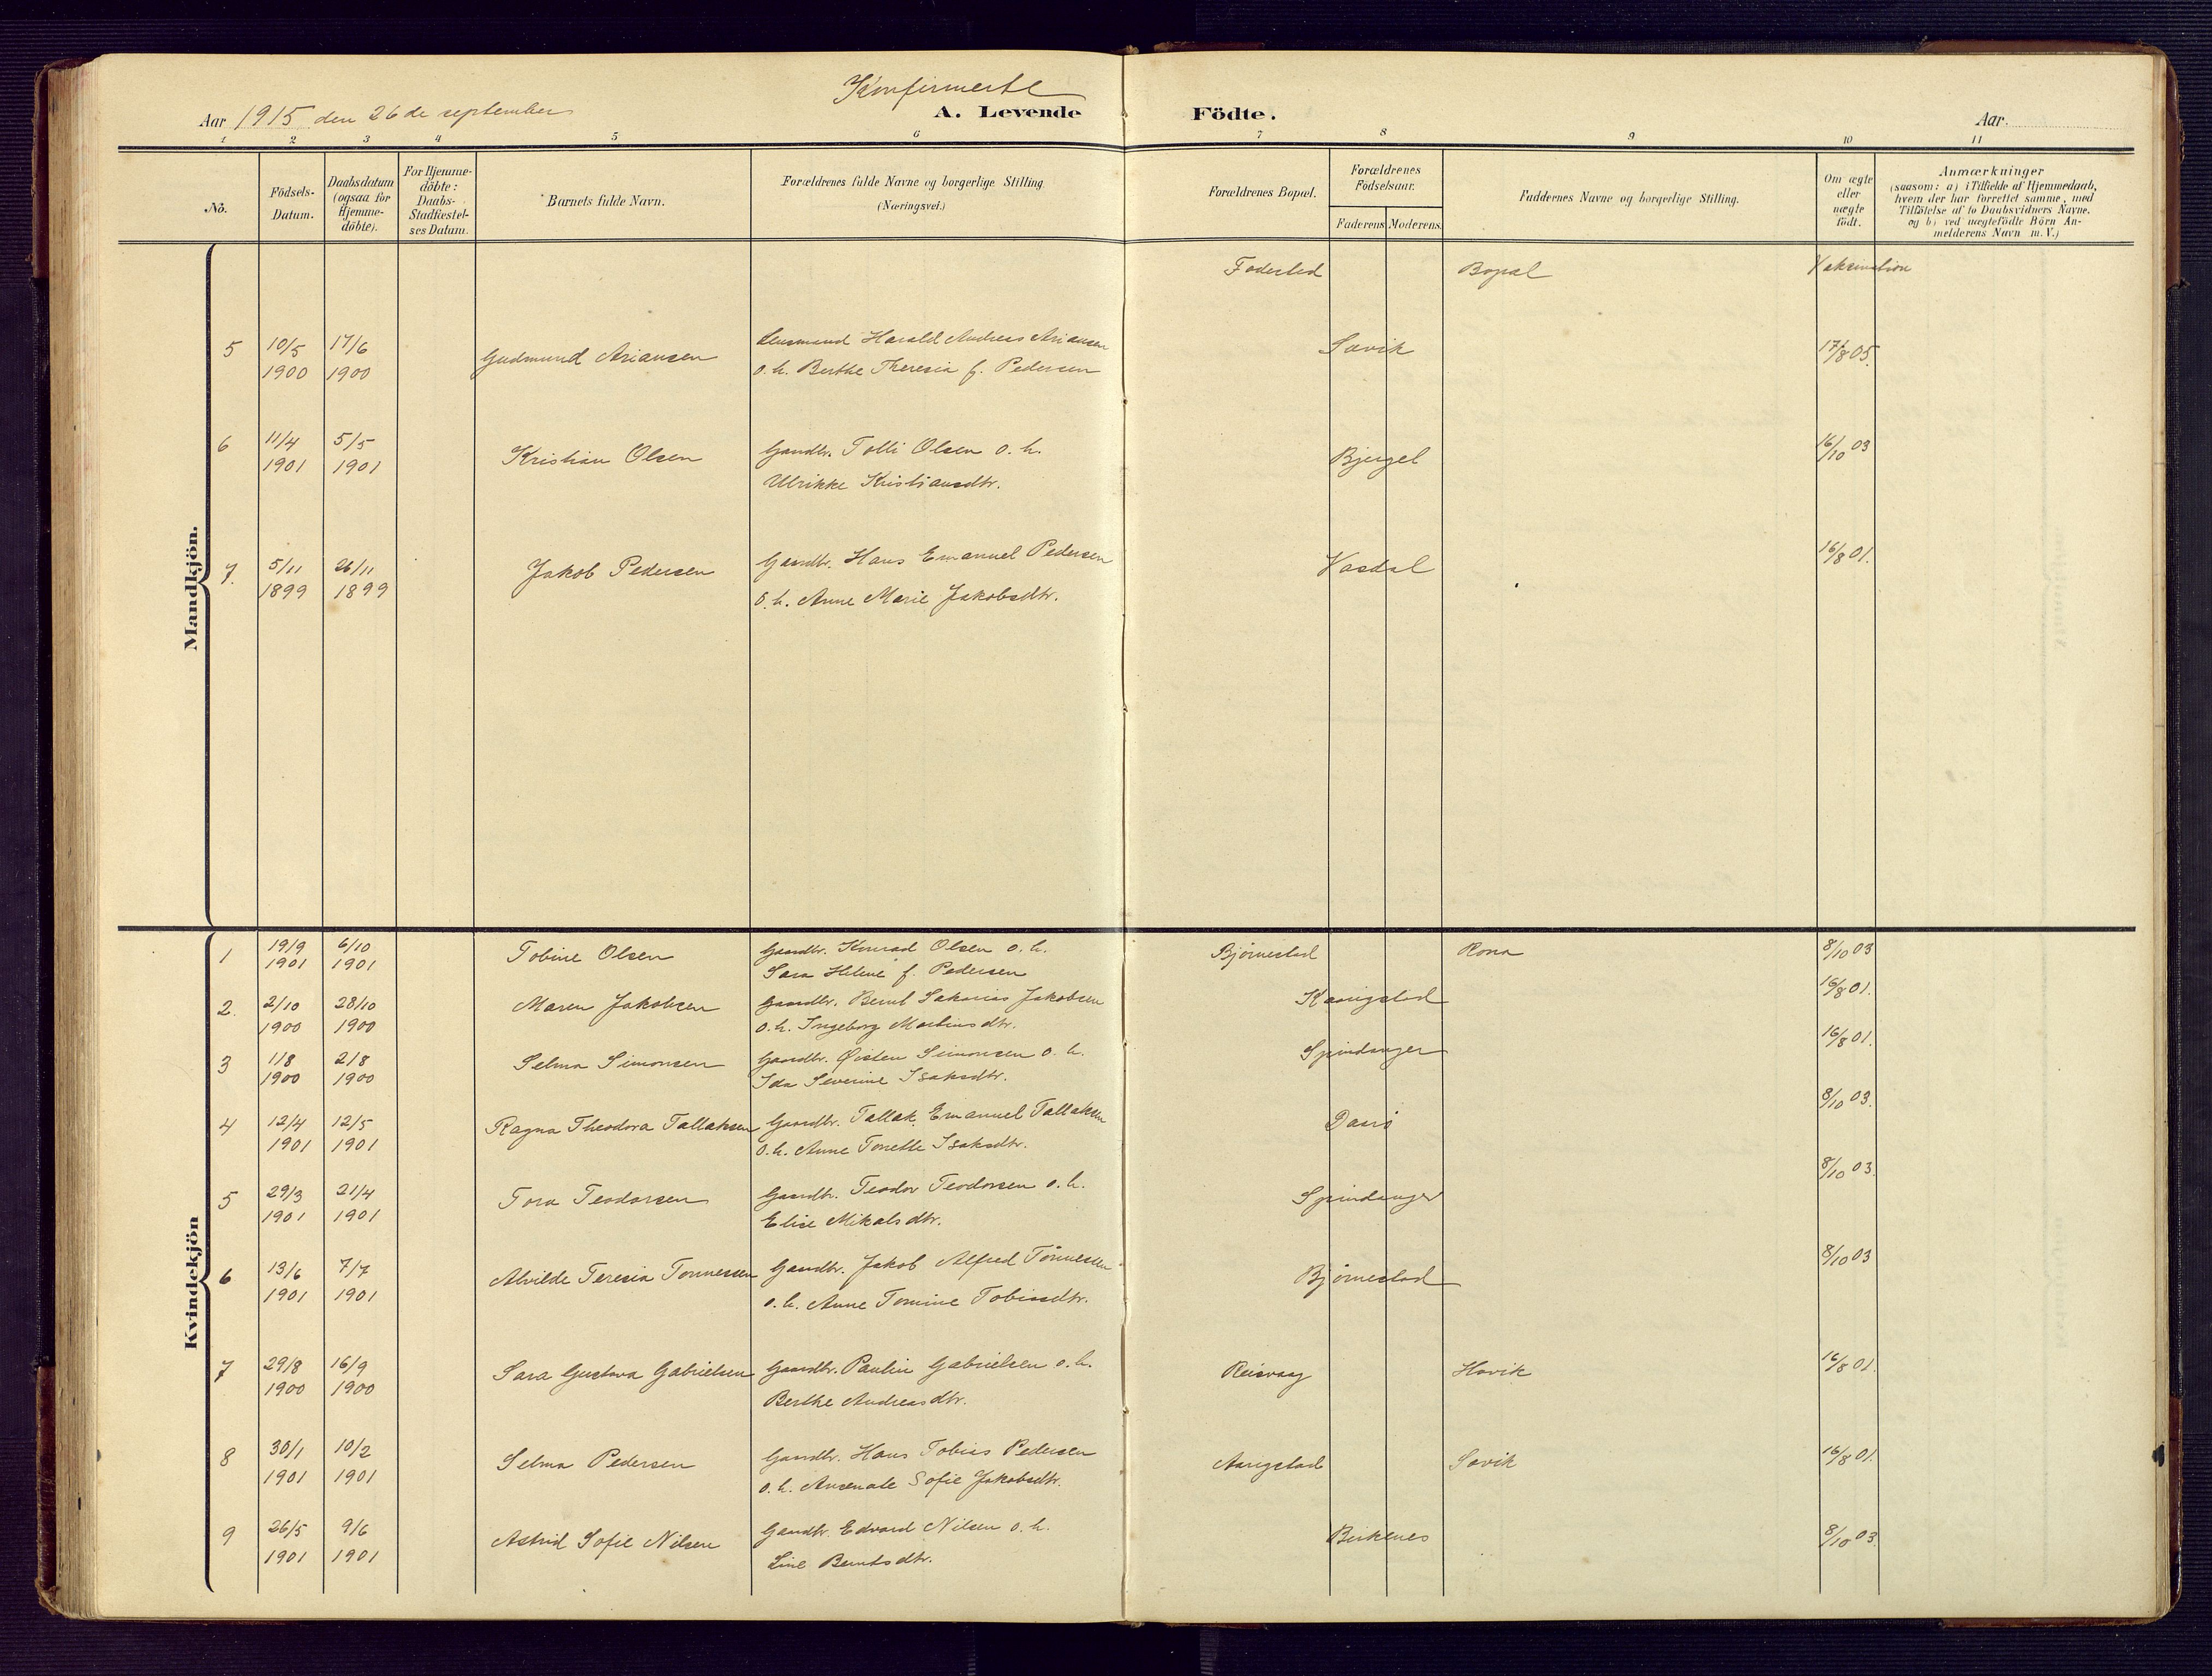 Konfirmerte
Aar 1915 den 26de september
A. Levende Födte.
Aar
1 2 3 4 5 6 7 8 9 10 11
No.
Födsels-
Datum.
Daabsdatum
(ogsaa for
Hjemme-
döbte).
For Hjemme-
döbte:
Daabs-
Stadfæstel-
ses Datum.
Barnets fulde Navn.
Forældrenes fulde Navne og borgerlige Stilling
(Næringsvei.)
Forældrenes Bopæl.
Forældrenes
Födselsaar.
Faderens Moderens.
Faddernes Navne og borgerlige Stilling.
Om ægte
eller
uægte
födt.
Anmærkninger
(saasom: a) i Tilfælde af Hjemmedaab,
hvem der har forrettet samme, med
Tilföielse af to Daabsvidners Navne,
og b) ved uægtefödte Börn An-
melderens Navn m. V.)
Fodested Bopal Vaksination
Mandkjön.
5 10/5 17/6 Gudmund Ariansen Lensmand Harald Andreas Ariansen Savik 17/8 05
1900 1900 o. h. Berthe Theresia f. Pedersen
6 11/4 5/5 Kristian Olsen Gaardbr. Tolli Olsen o. h. Bjergel 16/10 03
1901 1901 Ulrikke Kristiansdtr.
7. 5/11 26/11 Jakob Pedersen Gaardbr. Hans Emanuel Pedersen Vasdal 16/8 01.
1899 1899 o. h. Anne Marie Jakobsdtr.
Kvindekjön
1 19/9 6/10 Tobine Olsen Gaardbr. Konrad Olsen o. h. Bjørnestad Rona 8/10 03
1901 1901 Sara Helene f. Pedersen
2. 2/10 28/10 Maren Jakobsen Gaardbr. Bernt Sakarias Jakobsen Kaarigstad 16/8 01.
1900 1900 o. h. Ingeborg Martinusdtr.
3 1/8 2/8 Selma Simonsen Gaardbr. Øisten Simonsen o. h. Spindanger 16/8 01.
1900 1900 Ida Severine Isaksdtr.
4 12/4 12/5 Ragna Theodora Tallaksen Gaardbr. Tallak Emanuel Tallaksen 8/10 03.
1901 1901 o. h. Anne Tonette Isaksdtr.
5 29/3 21/4 Tora Teodorsen Gaardbr. Teodor Teodorsen o. h. Spindanger 8/10 03.
1901 1901 Elise Mikalsdtr.
6 13/6 7/7 Alvilde Teresia Tonnessen Gaardbr. Jakob Alfred Tönnessen Bjørnestad 8/10 03
1901 1901 o. h. Anne Tomine Tobiasdtr.
7 29/8 16/9 Sara Gustava Gabrielsen Gaardbr. Paulin Gabrielsen o. h. Reisvaag Havik 16/8 01.
1900 1900 Berthe Andreasdtr.
8 30/1 10/2 Selma Pedersen Gaardbr. Hans Tobias Pedersen Aarigstad Savik 16/8 01.
1901 1901 o. h. Anzenate Sofie Jakobsdtr.
9 26/5 9/6 Astrid Sofie Nilsen Gaardbr. Edvard Nilsen o. h. Birkenes 8/10 03.
1901 1901 Sine Berntsdtr.